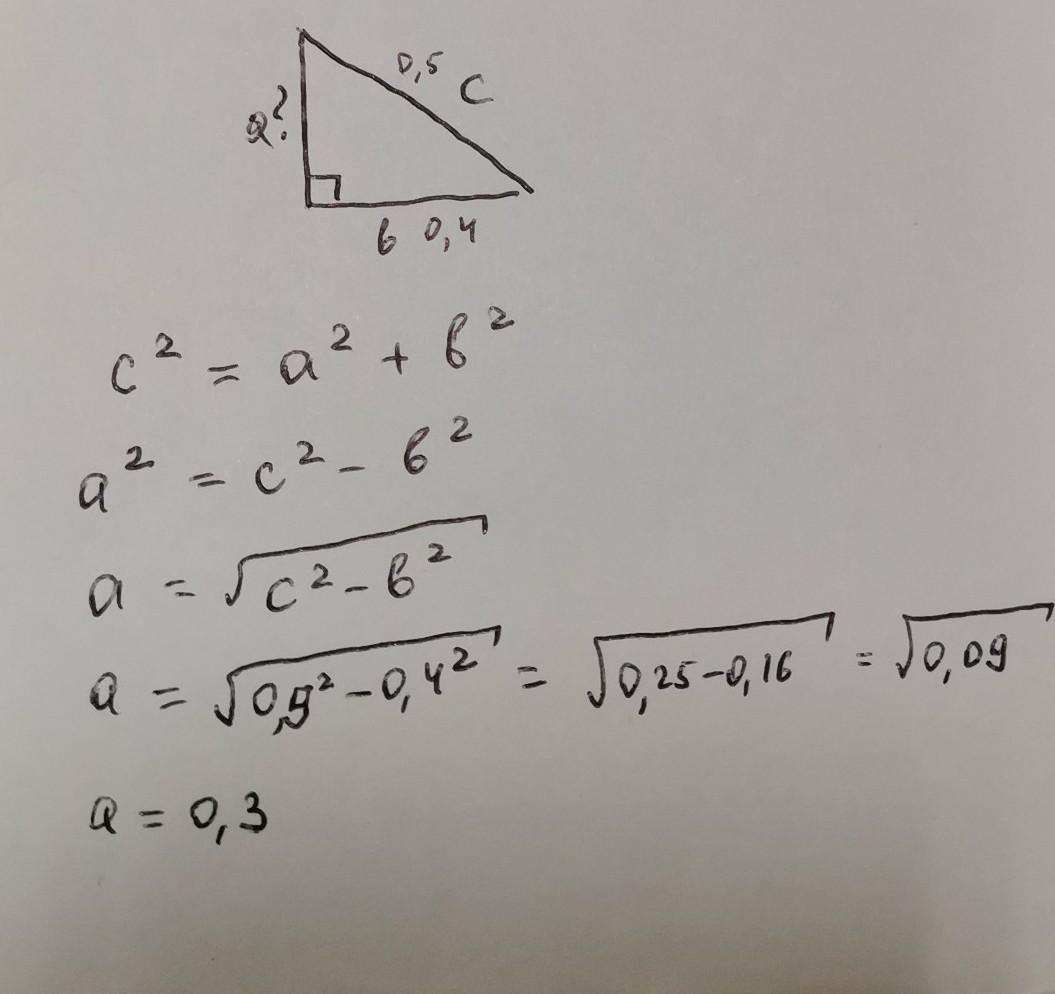 0,5 c
a?
b 0,4
c² = a² + b²
a² = c² - b²
a = √c² - b²
a = √0,5² - 0,4² = √0,25 - 0,16 = √0,09
a = 0,3